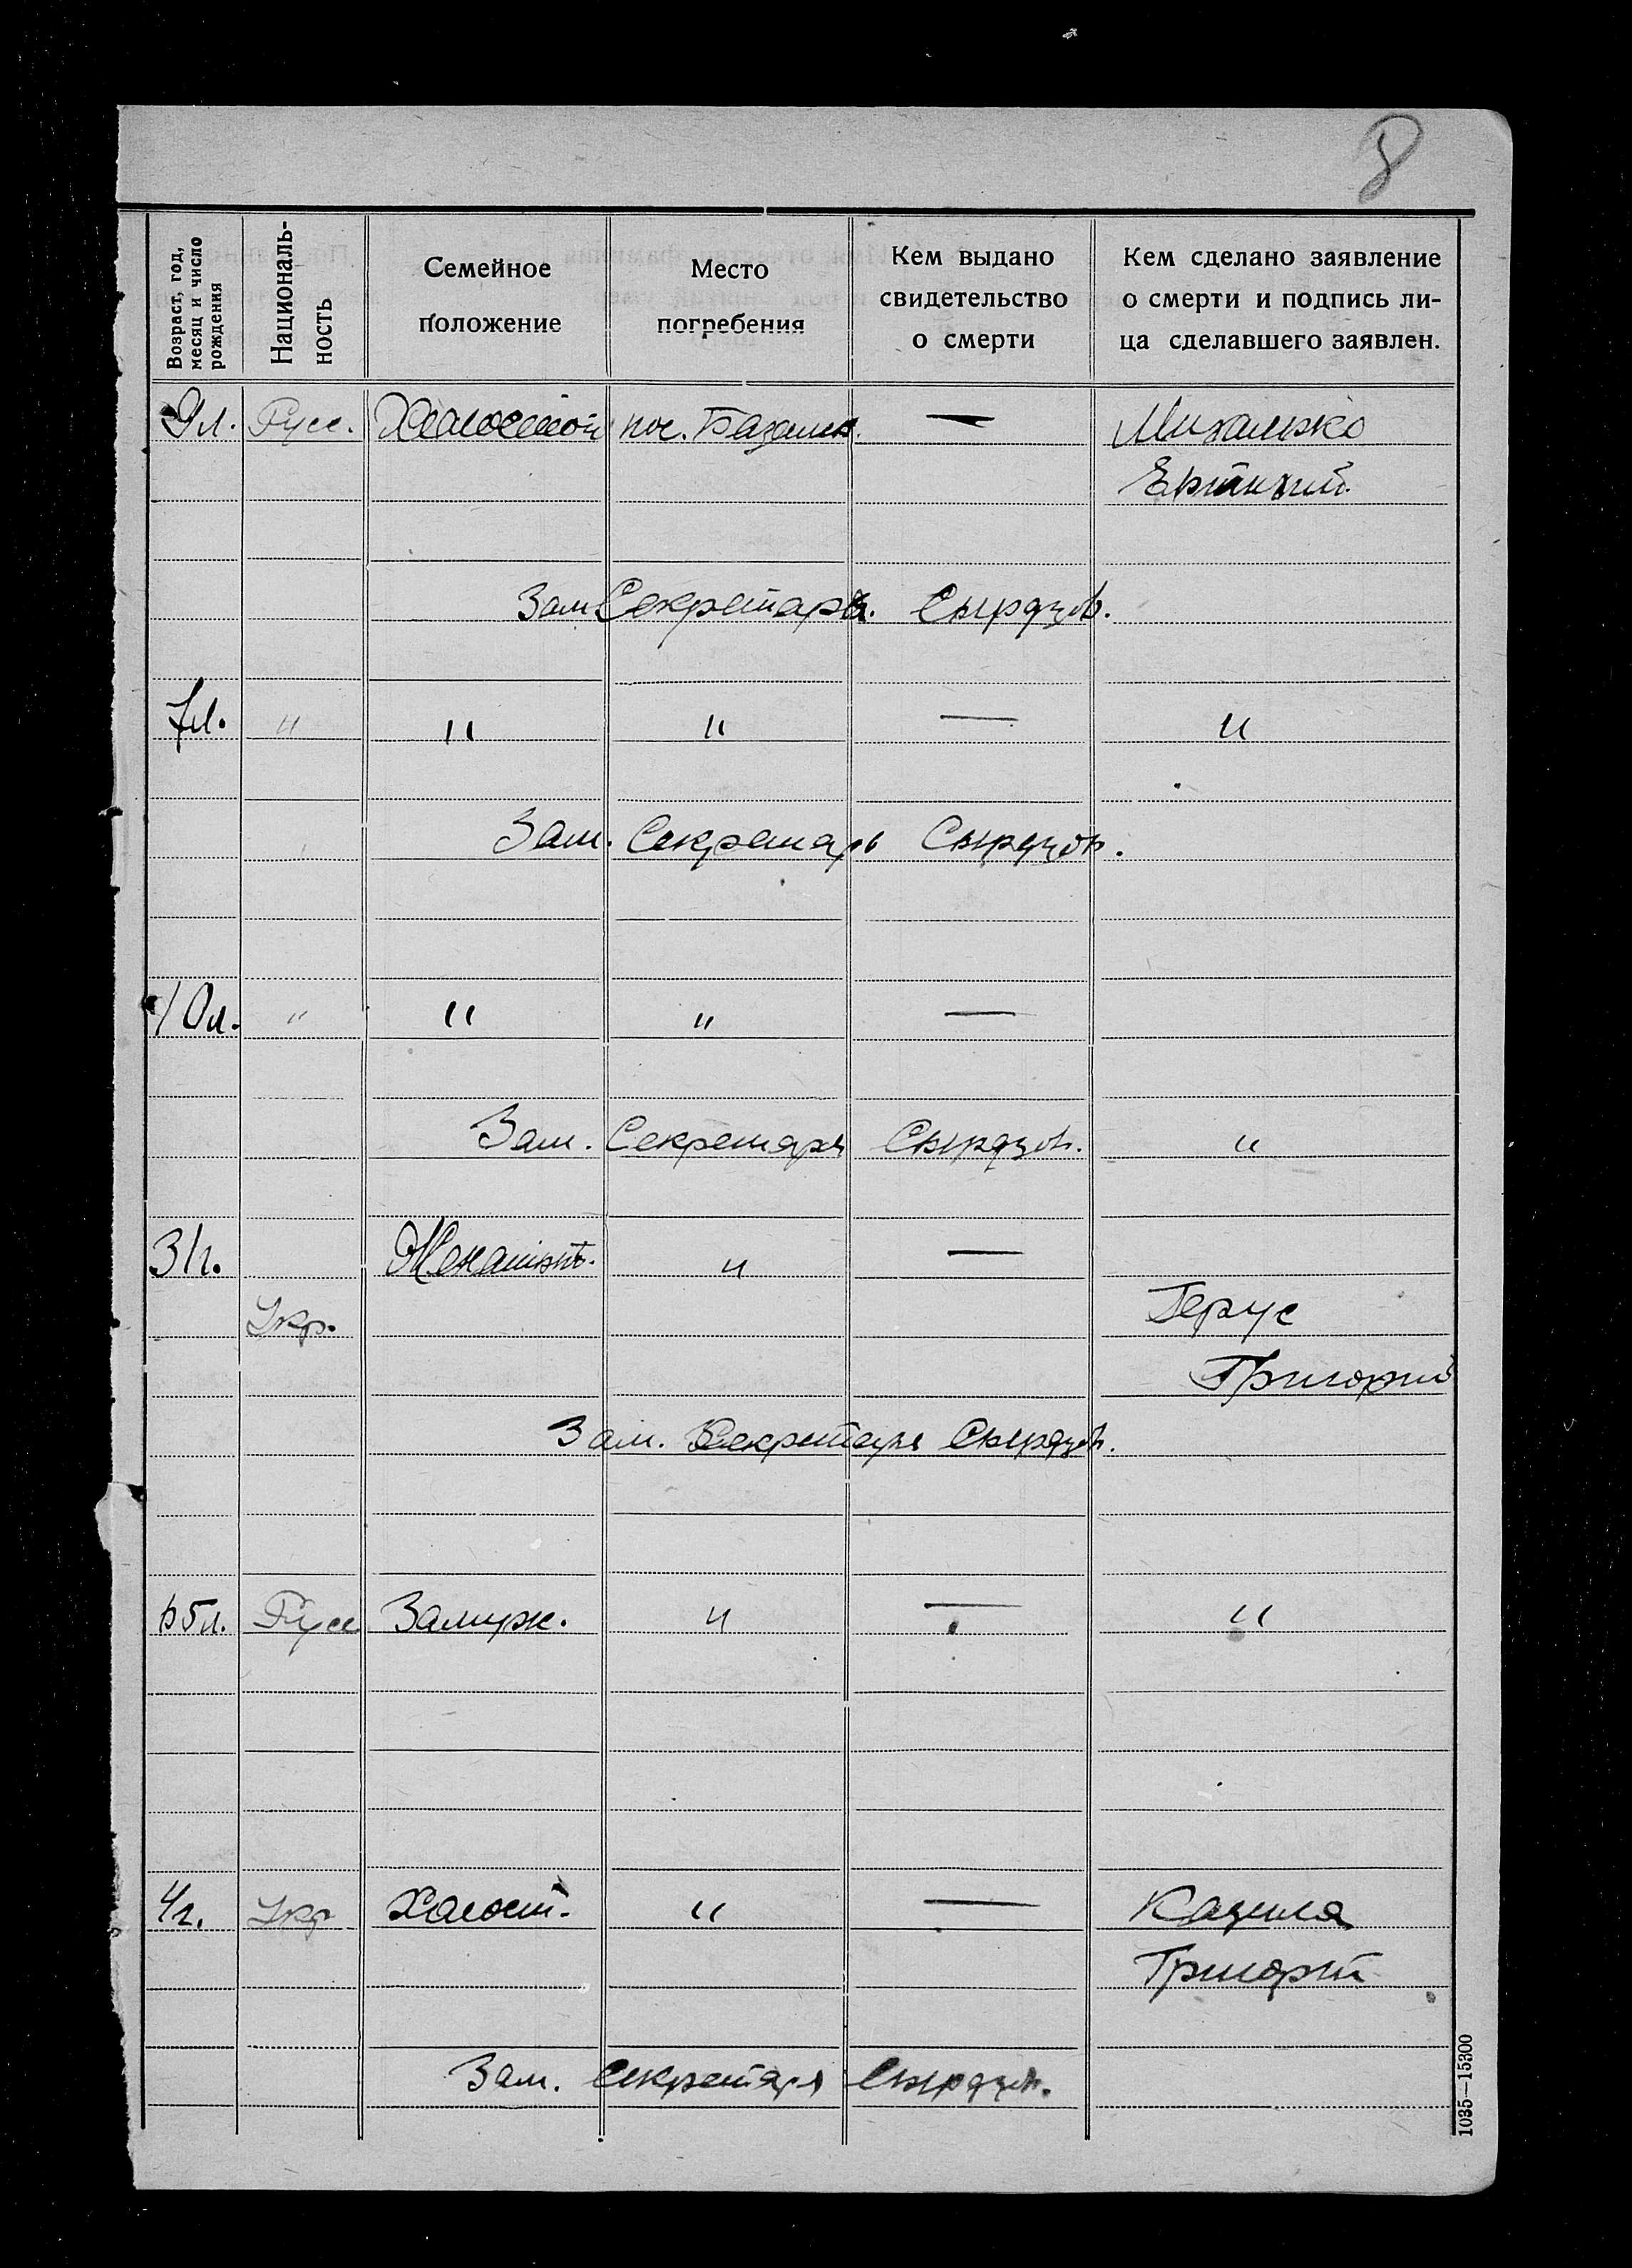 8
Возраст, год, месяц и число рождения
Националь-
ность
Семейное
положение
Место
погребения
Кем выдано
свидетельство
о смерти
Кем сделано заявление
о смерти и подпись ли-
ца сделавшего заявлен.
9л. Русс. Холостой пос. — Михалько
Зам Секретаря.
7л. " " " — "
Зам. Секретарь
10л. " " " —
Зам. Секретаря "
31г. " —
Укр. Герус
Григорий
Зам. Секретаря
65л. Русс Замуж. " — "
4г. Укр Холост. " —
Григорий
Зам. Секретаря
1035—15300